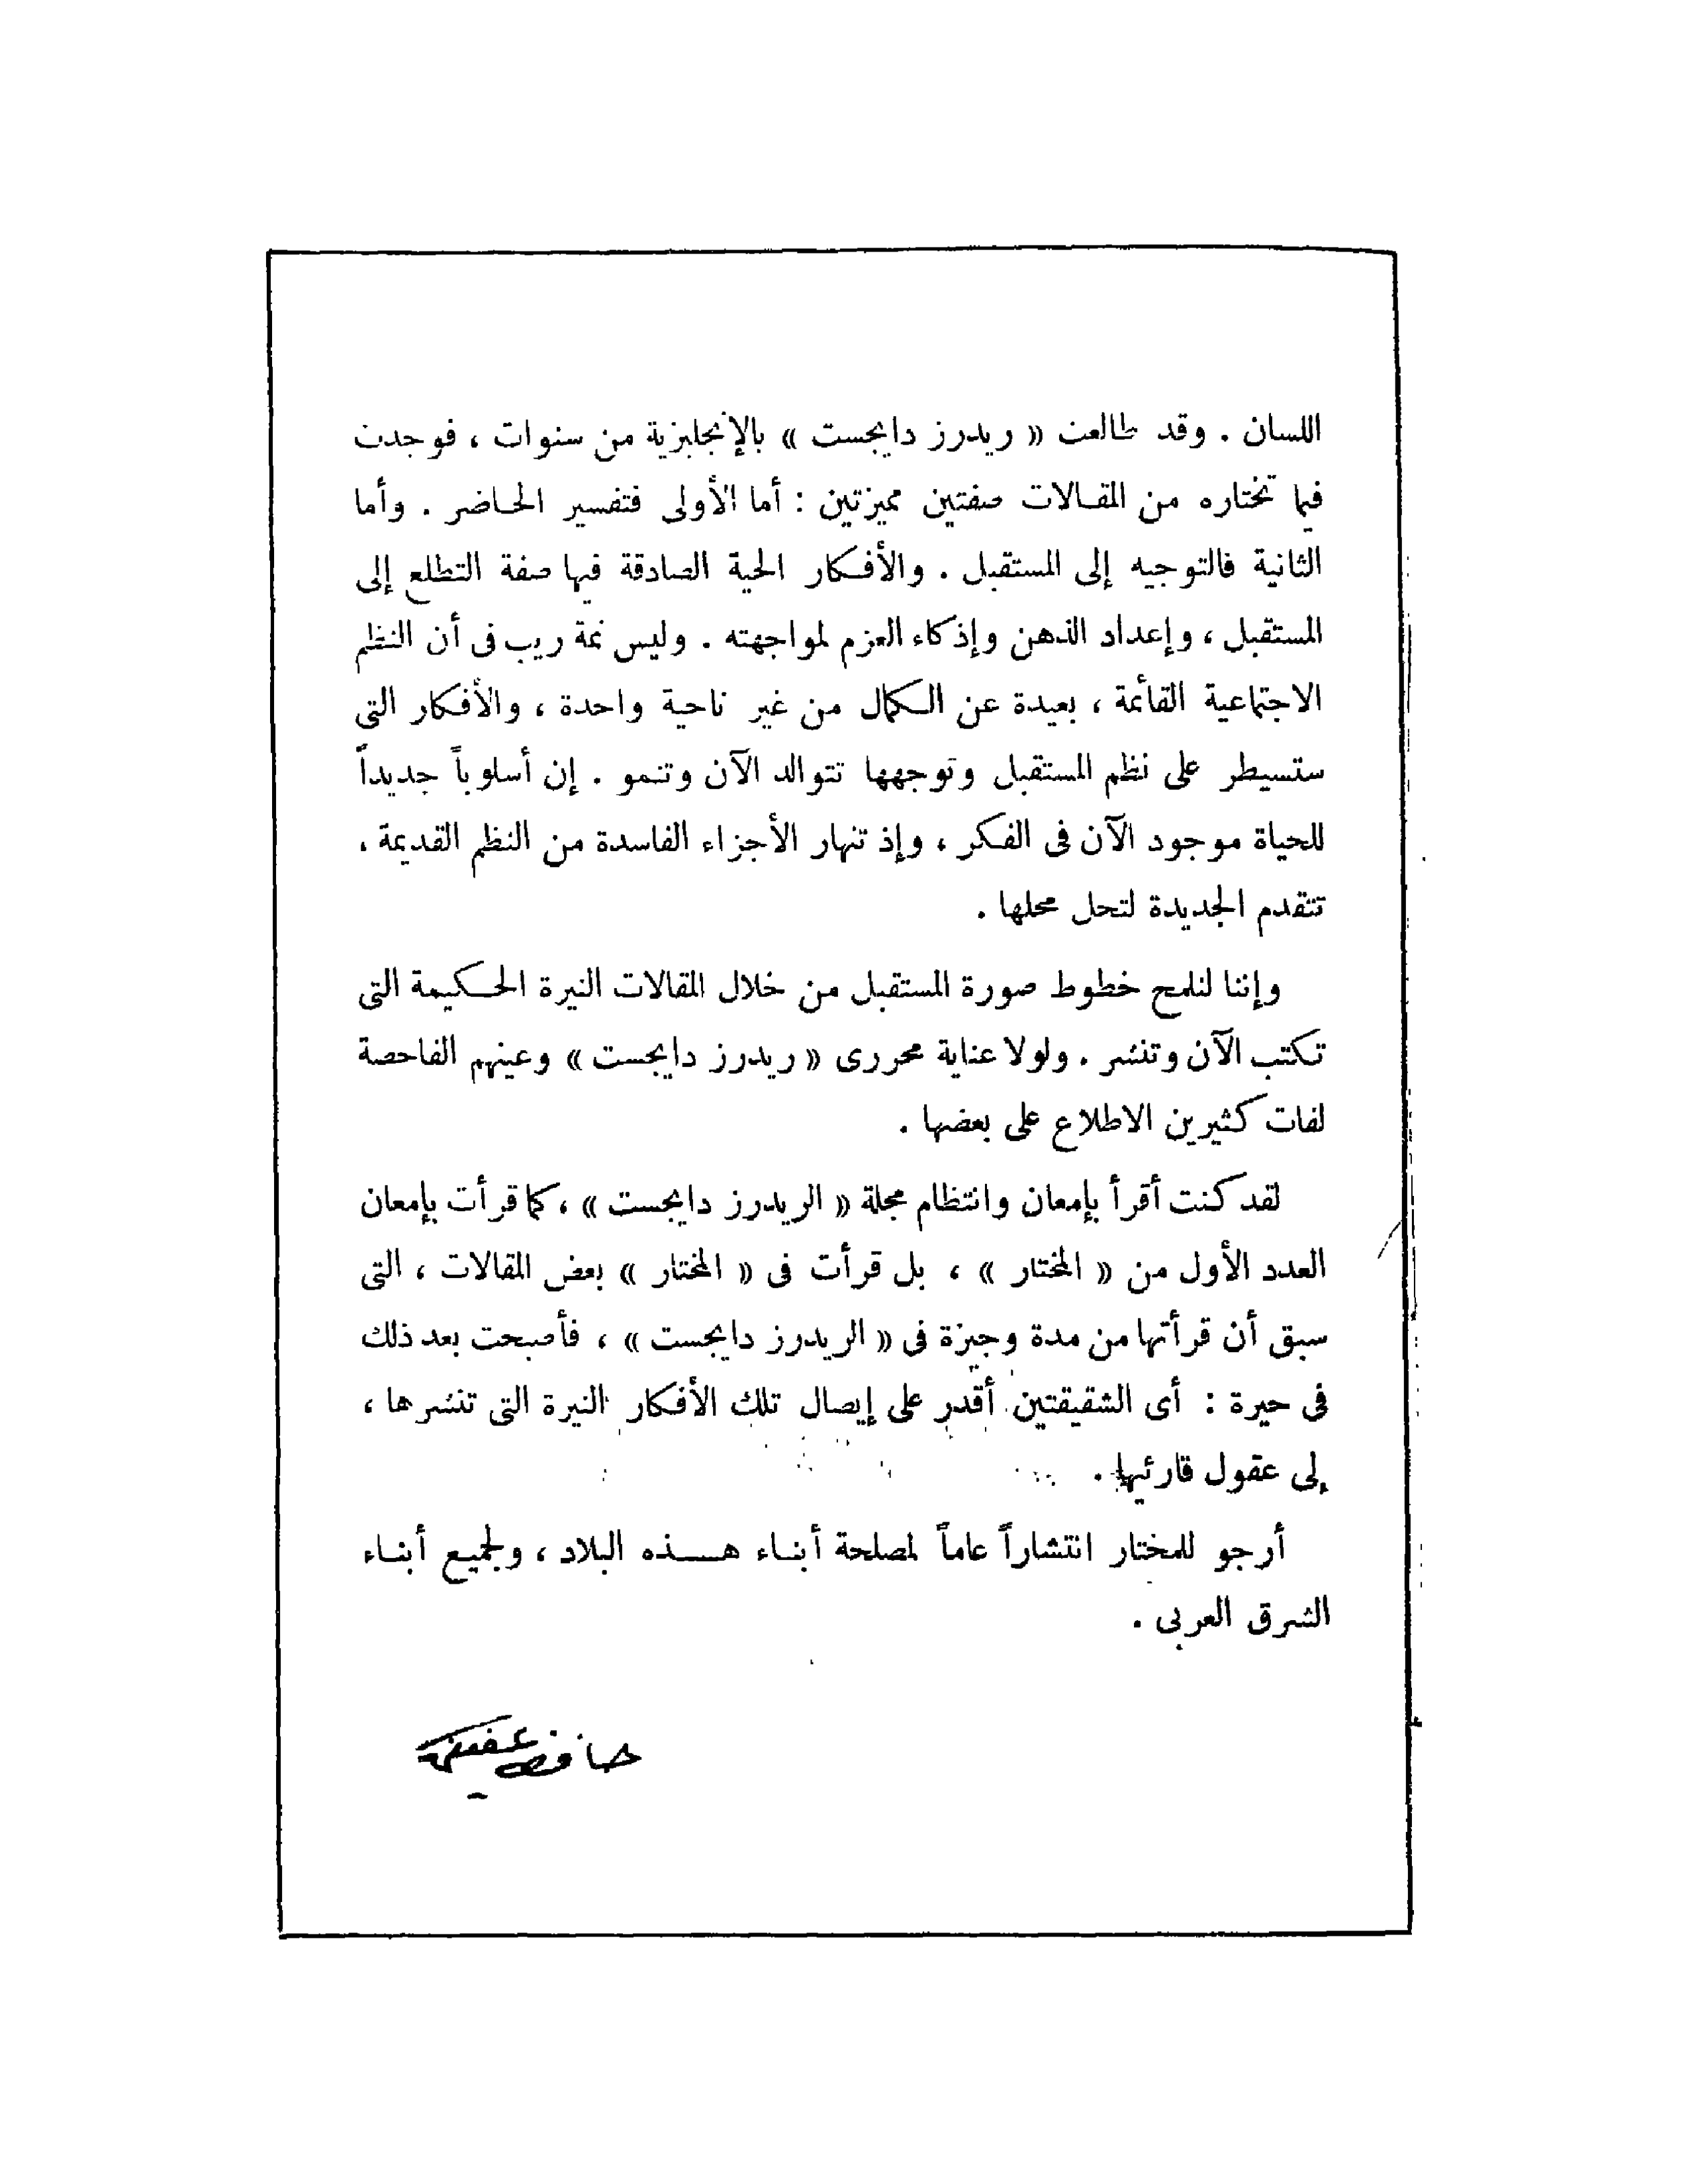 اللسان . وقد طالعت « ريدرز دايجست » بالإنجليزية من سنوات ، فوجدت
فيما تختاره من المقالات صفتين مميزتين : أما الأولى فتفسير الحاضر . وأما
الثانية فالتوجيه إلى المستقبل . والأفكار الحية الصادقة فيها صفة التطلع إلى
المستقبل ، وإعداد الذهن وإذكاء العزم لمواجهته . وليس ثمة ريب فى أن النظم
الاجتماعية القائمة ، بعيدة عن الكمال من غير ناحية واحدة ، والأفكار التى
ستسيطر على نظم المستقبل وتوجهها تتوالد الآن وتنمو . إن أسلوباً جديداً
للحياة موجود الآن فى الفكر ، وإذ تنهار الأجزاء الفاسدة من النظم القديمة ،
تتقدم الجديدة لتحل محلها .
وإننا لنلمح خطوط صورة المستقبل من خلال المقالات النيرة الحكيمة التى
تكتب الآن وتنشر . ولولا عناية محررى « ريدرز دايجست » وعينهم الفاحصة
لفات كثيرين الاطلاع على بعضها .
لقد كنت أقرأ بإمعان وانتظام مجلة « الريدرز دايجست » ، كما قرأت بإمعان
العدد الأول من « المختار » ، بل قرأت فى « المختار » بعض المقالات ، التى
سبق أن قرأتها من مدة وجيزة فى « الريدرز دايجست » ، فأصبحت بعد ذلك
فى حيرة : أى الشقيقتين أقدر على إيصال تلك الأفكار النيرة التى تنشرها ،
إلى عقول قارئيها .
أرجو للمختار انتشاراً عاماً لمصلحة أبناء هذه البلاد ، ولجميع أبناء
الشرق العربى .
حافظ عفيفى